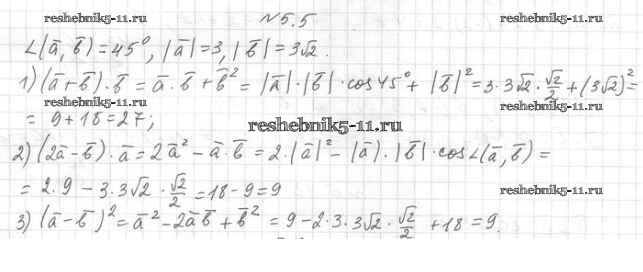 №5.5
reshebnik5-11.ru reshebnik5-11.ru
∠(a̅, b̅) = 45°, |a̅| = 3, |b̅| = 3√2.
1) (a̅+b̅)·b̅ = a̅·b̅ + b̅² = |a̅|·|b̅|·cos45° + |b̅|² = 3·3√2·√2/2 + (3√2)² =
reshebnik5-11.ru reshebnik5-11.ru
= 9+18=27;
reshebnik5-11.ru
2) (2a̅-b̅)·a̅ = 2a̅² - a̅·b̅ = 2·|a̅|² - |a̅|·|b̅|·cos∠(a̅, b̅) =
= 2·9 - 3·3√2·√2/2 = 18-9=9
reshebnik5-11.ru
3) (a̅-b̅)² = a̅² - 2a̅b̅ + b̅² = 9 - 2·3·3√2·√2/2 + 18 = 9.
reshebnik5-11.ru